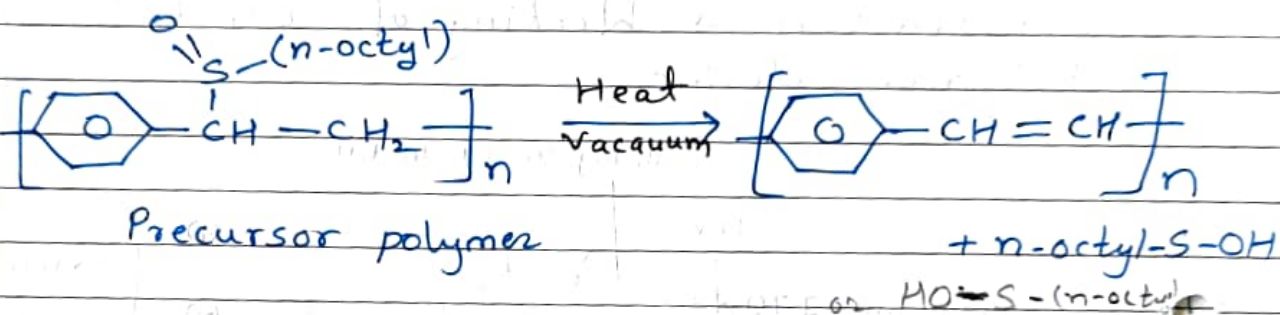 O
S-(n-octyl)
[-⌬-CH-CH₂-]n Heat Vacauum [-⌬-CH=CH-]n
Precursor polymer
+ n-octyl-S-OH
or HO-S-(n-octyl)